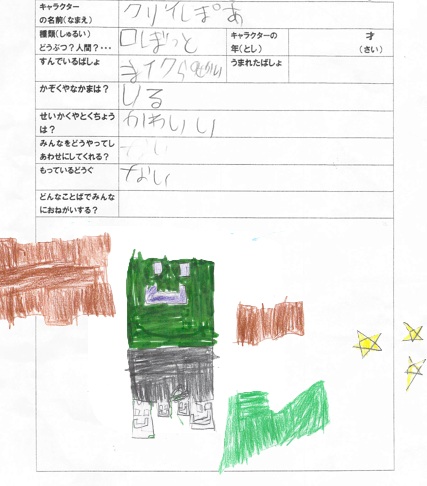 キャラクターの名前(なまえ) クリイしぽあ
種類(しゅるい) どうぶつ？人間？・・・ ロぼっと キャラクターの年(とし) 才(さい)
すんでいるばしょ まイクらせかい うまれたばしょ
かぞくやなかまは？ いる
せいかくやとくちょうは？ かわいい
みんなをどうやってしあわせにしてくれる？
もっているどうぐ ない
どんなことばでみんなにおねがいする？